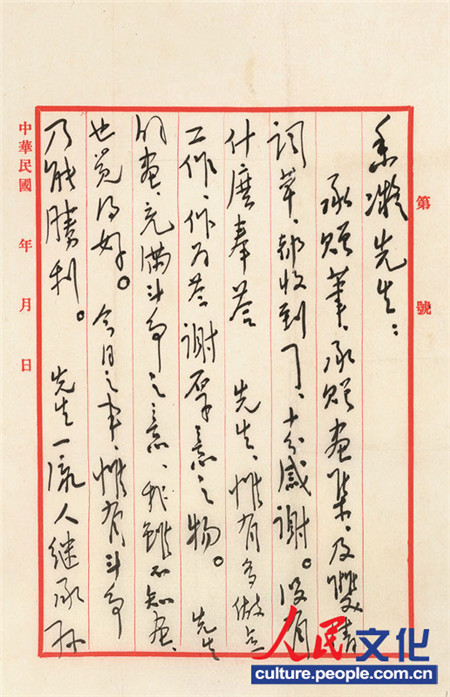 第 號
香凝先生：
承赐筆、承赐画集、及雙清
词草、都收到了、十分感谢。没有
什麽奉答 先生、惟有多做点
工作、作为答谢厚意之物。 先生
的画、充满斗争之意、我虽不知画、
也觉得好。 今日之事、惟有斗争
乃能勝利。 先生一流人继承孙
中華民國 年 月 日
人民文化
culture.people.com.cn